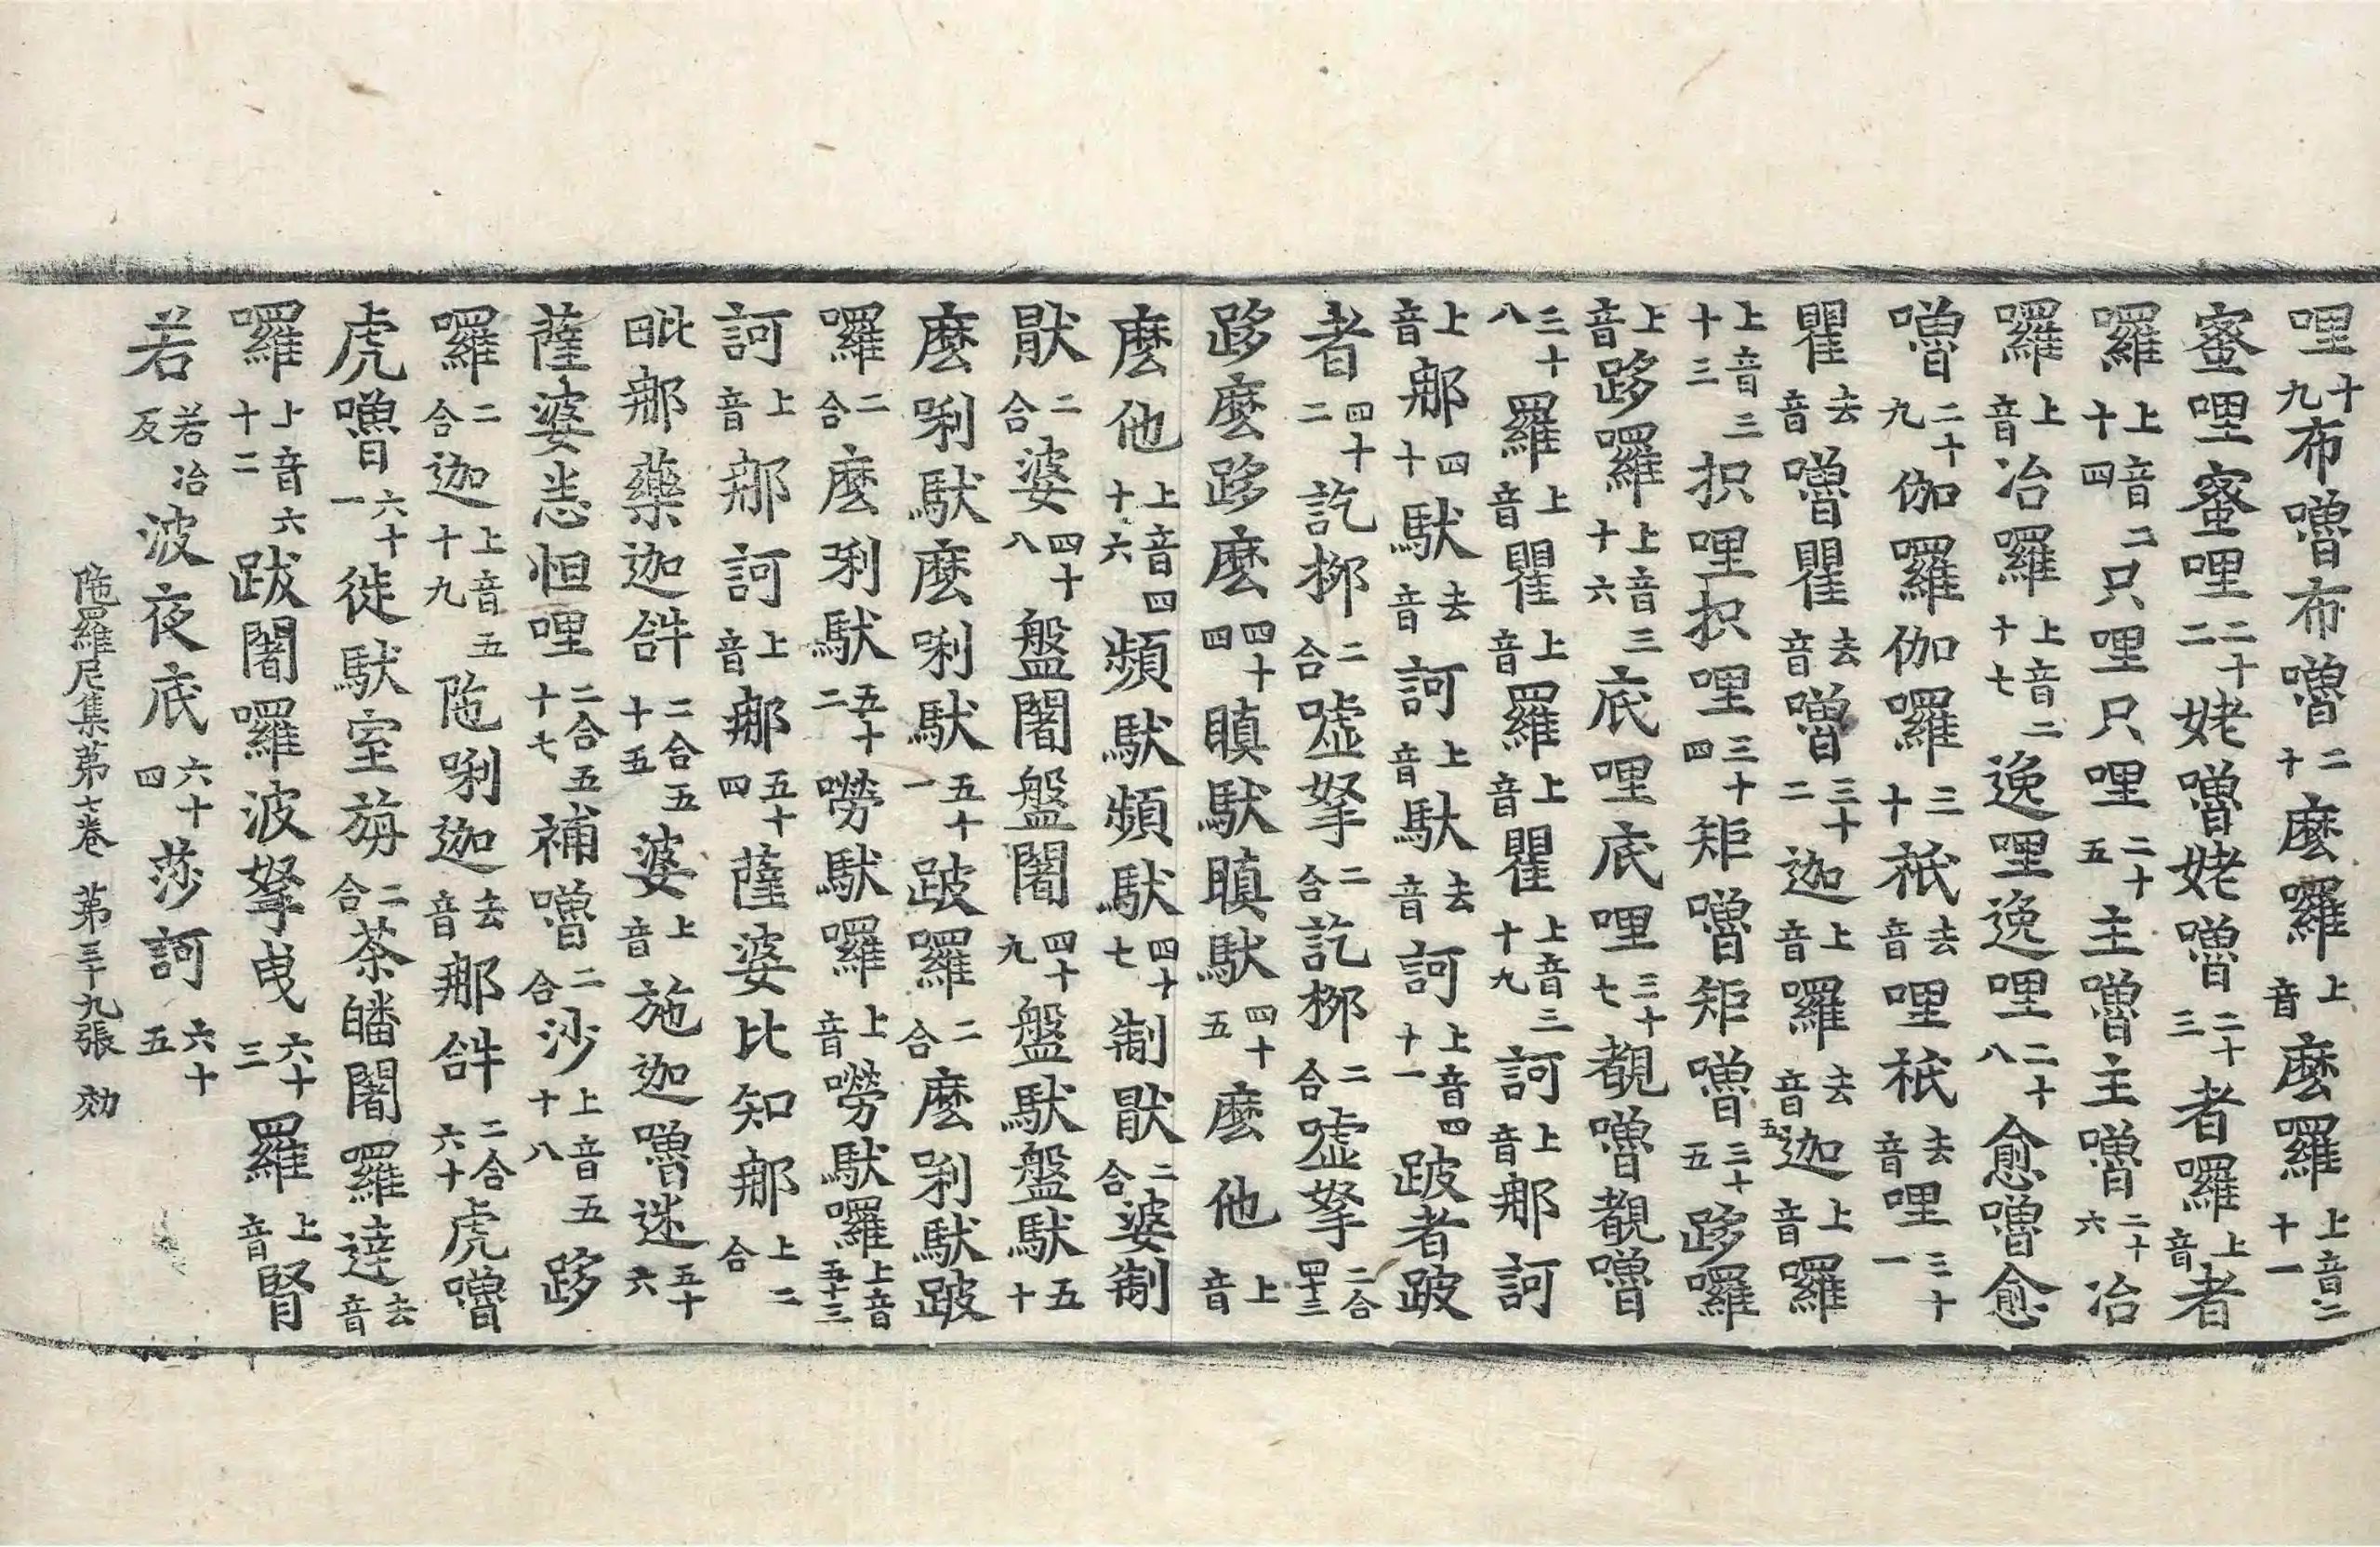 哩十九布嚕布嚕二十麽囉上音麽囉上音二十一
蜜哩蜜哩二十二姥嚕姥嚕二十三者囉上音者
囉上音二十四只哩只哩二十五主嚕主嚕二十六冶
囉上音冶囉上音二十七逸哩逸哩二十八愈嚕愈
嚕二十九伽囉伽囉三十祇去音哩祇去音哩三十一
瞿去音嚕瞿去音嚕三十二迦上音囉去音五迦上音囉
上音三十三抧哩抧哩三十四矩嚕矩嚕三十五跢囉
上音跢囉上音三十六底哩底哩三十七覩嚕覩嚕
三十八羅上音瞿上音羅上音瞿上音三十九訶上音那訶
上音那四十馱去音訶上音馱去音訶上音四十一跛者跛
者四十二訖挪二合嘘拏二合訖挪二合嘘拏二合四十三
跢麽跢麽四十四瞋馱瞋馱四十五麽他上音
麽他上音四十六頻馱頻馱四十七制䭾二合婆制
䭾二合婆四十八盤闍盤闍四十九盤馱盤馱五十
麽唎馱麽唎馱五十一跛囉二合麽唎馱跛
囉二合麽唎馱五十二嘮馱囉上音嘮馱囉上音五十三
訶上音那訶上音那五十四薩婆比知那上二合
毗那藥迦𤙖二合五十五婆上音施迦嚕迷五十六
薩婆恙怛哩二合五十七補嚕二合沙上音五十八跢
囉二合迦上音五十九陁唎迦去音那𤙖二合六十虎嚕
虎嚕六十一徙馱室旃二合荼皤闍囉達去音
囉上音六十二跋闍囉波拏曳六十三羅上音腎
若若冶反波夜底六十四莎訶六十五
陁羅尼集第七卷　第三十九張　効